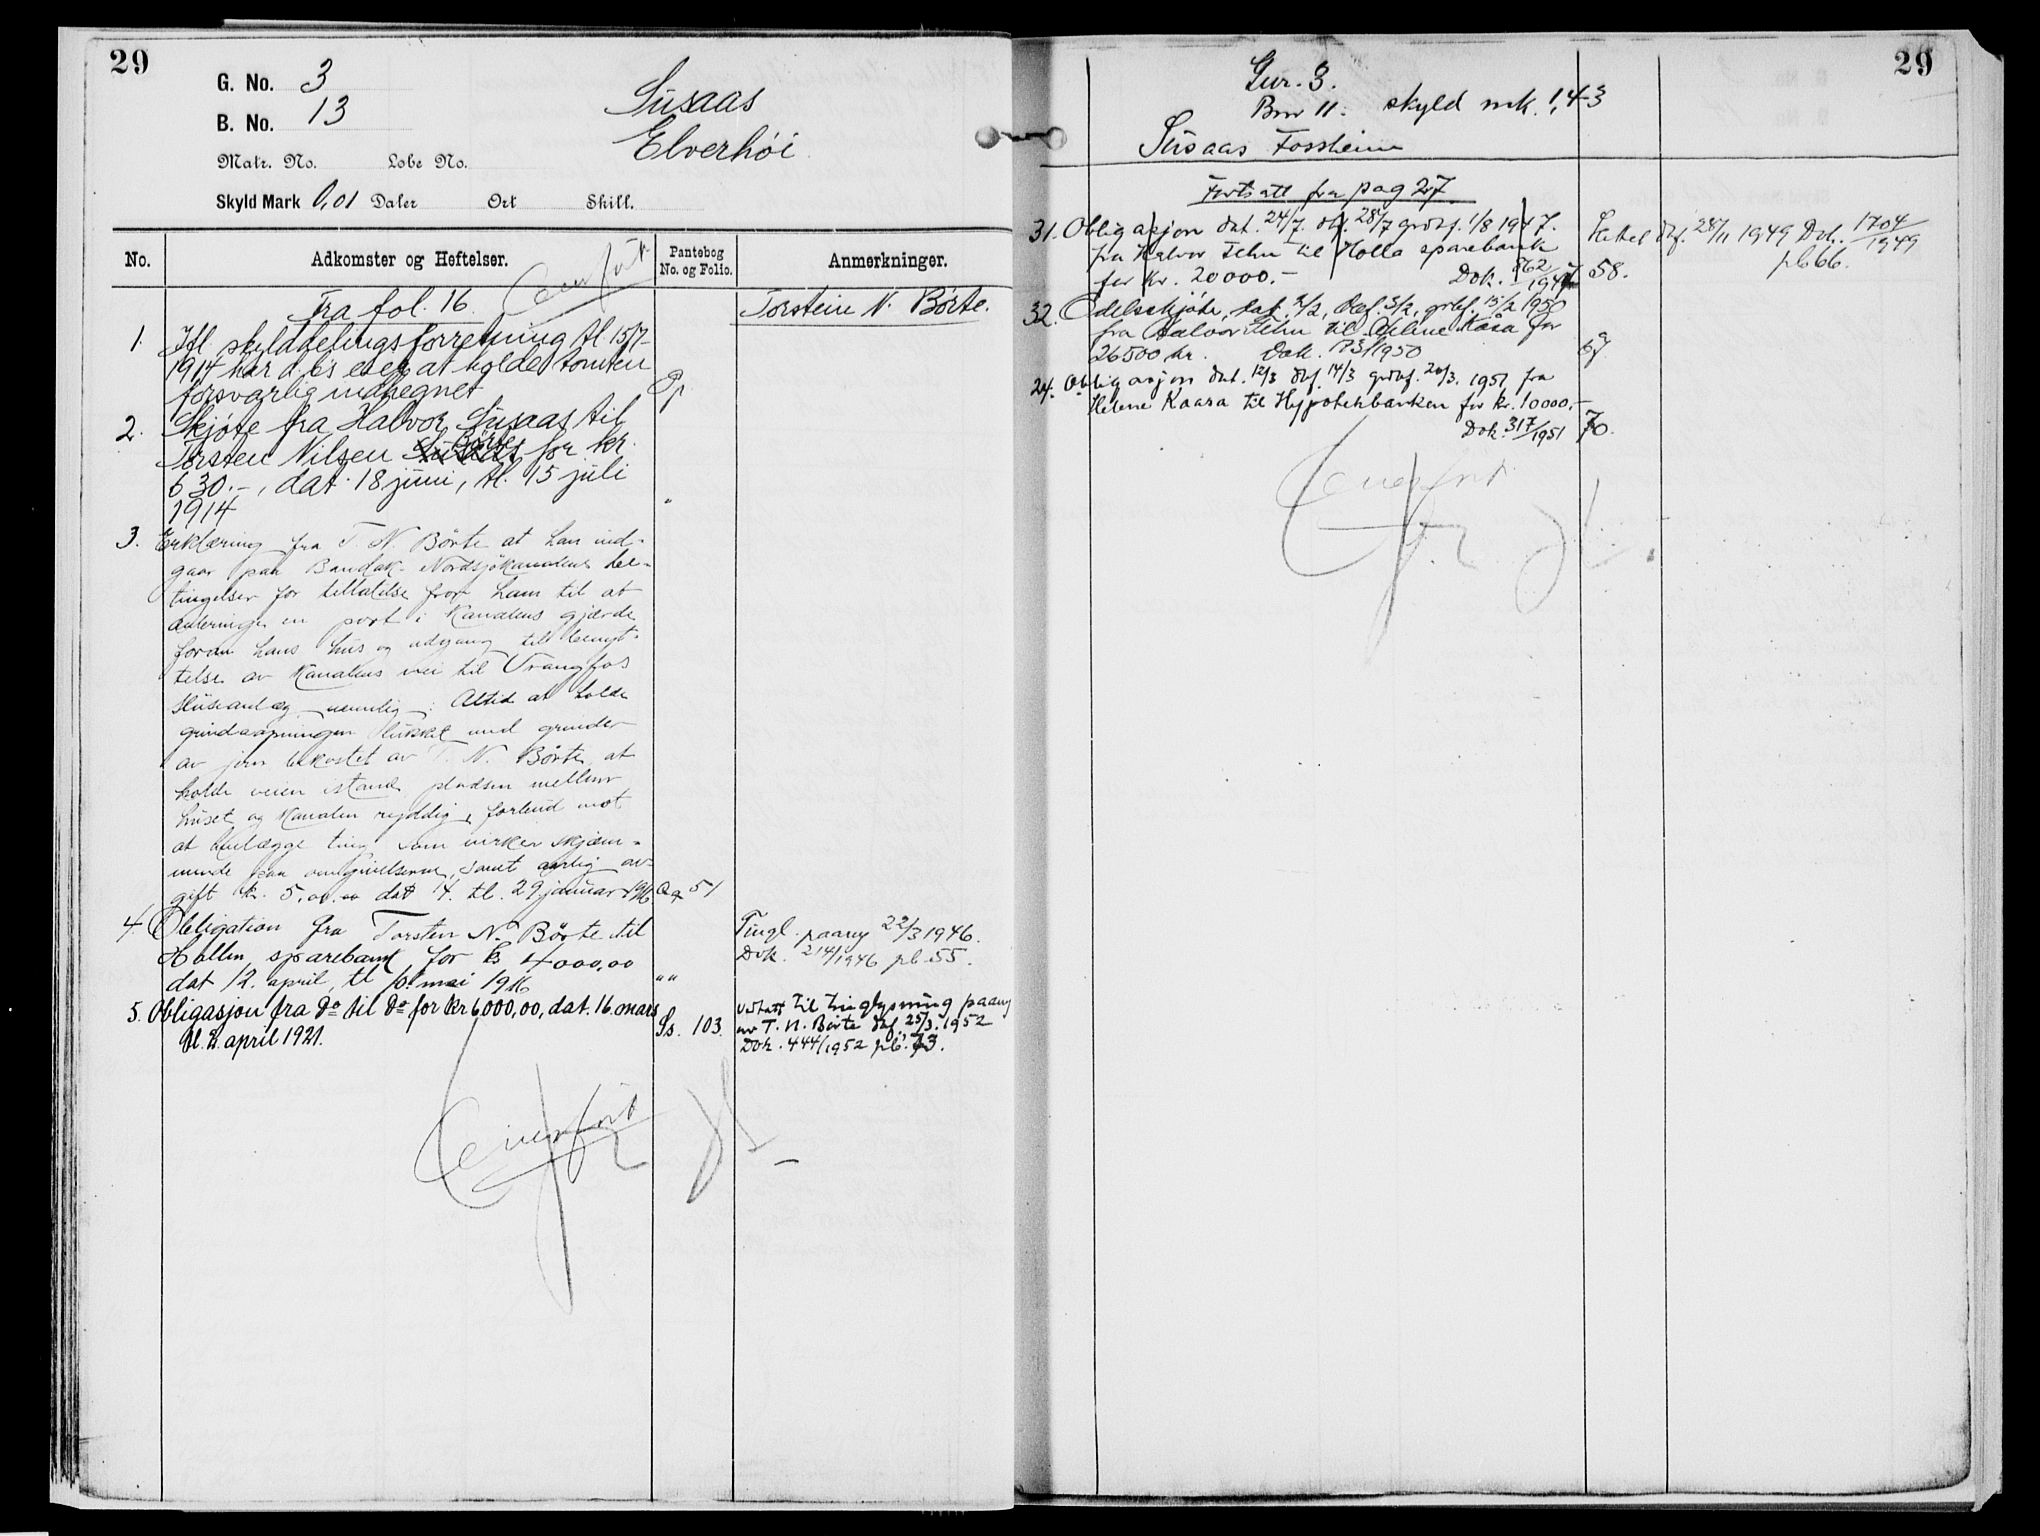 29
G. No. 3
B. No. 13
Matr. No. Løbe No.
Skyld Mark 0,01 Daler Ort Skill.
Susaas
Elverhöi
No.
Adkomster og Heftelser.
Pantebog No. og Folio.
Anmerkninger.
Fra fol. 16
Torstein N. Börte.
1. Ifl. skylddelingsforretning tl. 15/7-
1914 har d. br's eier at holde tomten
forsvarlig indhegnet
2. Skjöte fra Halvor Susaas til
Torsten Nilsen Susaas Börte for kr.
630.-, dat. 18 juni, tl. 15 juli
1914 "
3. Erklæring fra T. N. Börte at han ind-
gaar paa Bandak-Nordsjökanalens be-
tingelser for tillatelse for ham til at
anbringe en port i Kanalens gjærde
foran hans hus og udgang til benyt-
telse av Kanalens vei til Vrangfos
sluseanlæg nemlig: Altid at holde
grindaapningen lukket med grinder
av jern bekostet av T. N. Börte, at
holde veien istand, pladsen mellem
huset og Kanalen ryddig, forbud mot
at henlægge ting som virker skjæm-
mende paa omgivelserne, samt aarlig av-
gift kr. 5,00 dat 4. tl. 29 januar 1916 Qq 51
4. Obligation fra Torsten N. Börte til
Hollen sparebank for kr 4000,00
dat 12. april, tl 10. mai 1916 " "
Tingl. paany 22/3 1946.
Dok. 214/1946 pb. 55.
5. Obligasjon fra Do til Do for kr 6000,00, dat. 16. mars
tl. 2. april 1921. Ss. 103.
til tinglysning paany
av T. N. Börte dbf. 25/3. 1952
Dok. 444/1952 pb. 73.
29
Gnr. 3.
Bnr 11. skyld mk. 1,43
Susaas Fossheim
Fortsatt fra pag 27
31. Obligasjon dat. 24/7. dbf. 28/7 grdbf. 1/8 1947.
fra Halvor Tehn til Holla sparebank
for kr. 20000.- Dok. 862/1947 58.
Slettet dbf. 28/11 1949 Dok. 1704/1949
pb 66.
32. Odelsskjöte, dat. 2/2, dbf. 3/2, grdbf. 15/2 1950
fra Halvor Tehn til Helene Kåsa for
26500 kr. Dok. 173/1950 67
24. Obligasjon dat. 12/3 dbf. 14/3 grdbf. 20/3. 1951 fra
Helene Kaasa til Hypotekbanken for kr. 10000.-
Dok. 317/1951 70.